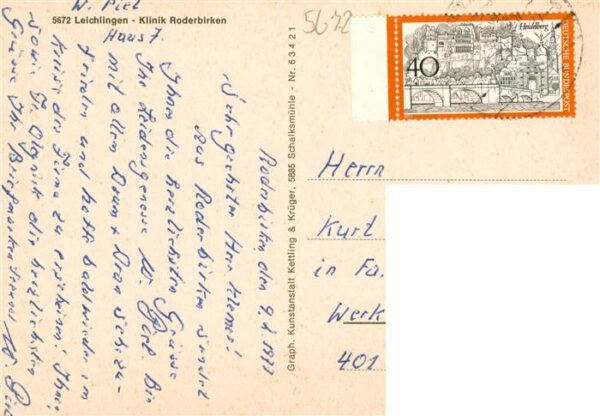 W. Piel
5672 Leichlingen - Klinik Roderbirken
Haus 7.
5672
Heidelberg
40
DEUTSCHE BUNDESPOST
Roderbirken, den 9.1. 1973
Sehr geehrter Herr
Aus Roderbirken sendet
Ihnen die herzlichsten Grüsse
Ihr Leidensgenosse W. Piel. Bin
mit allem Drum + Dran
zufrieden und hoffe bald wieder im
Kreise der Firma zu erscheinen! Ihnen
sowie die herzlichsten
Grüsse Ihr Briefmarkenfreund W. Piel
Graph. Kunstanstalt Kettling & Krüger, 5885 Schalksmühle - Nr. 63421
Herrn
Kurt
in Fa.
Werk
401